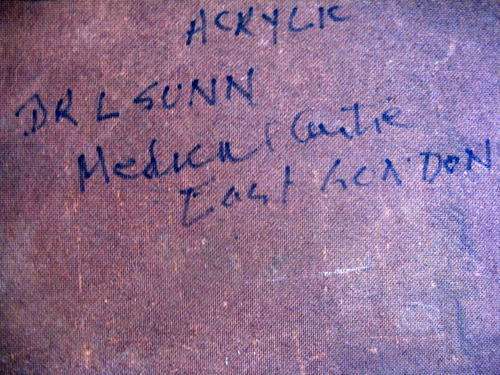 ACRYLIC
DR L SUNN
Medical Centre
East